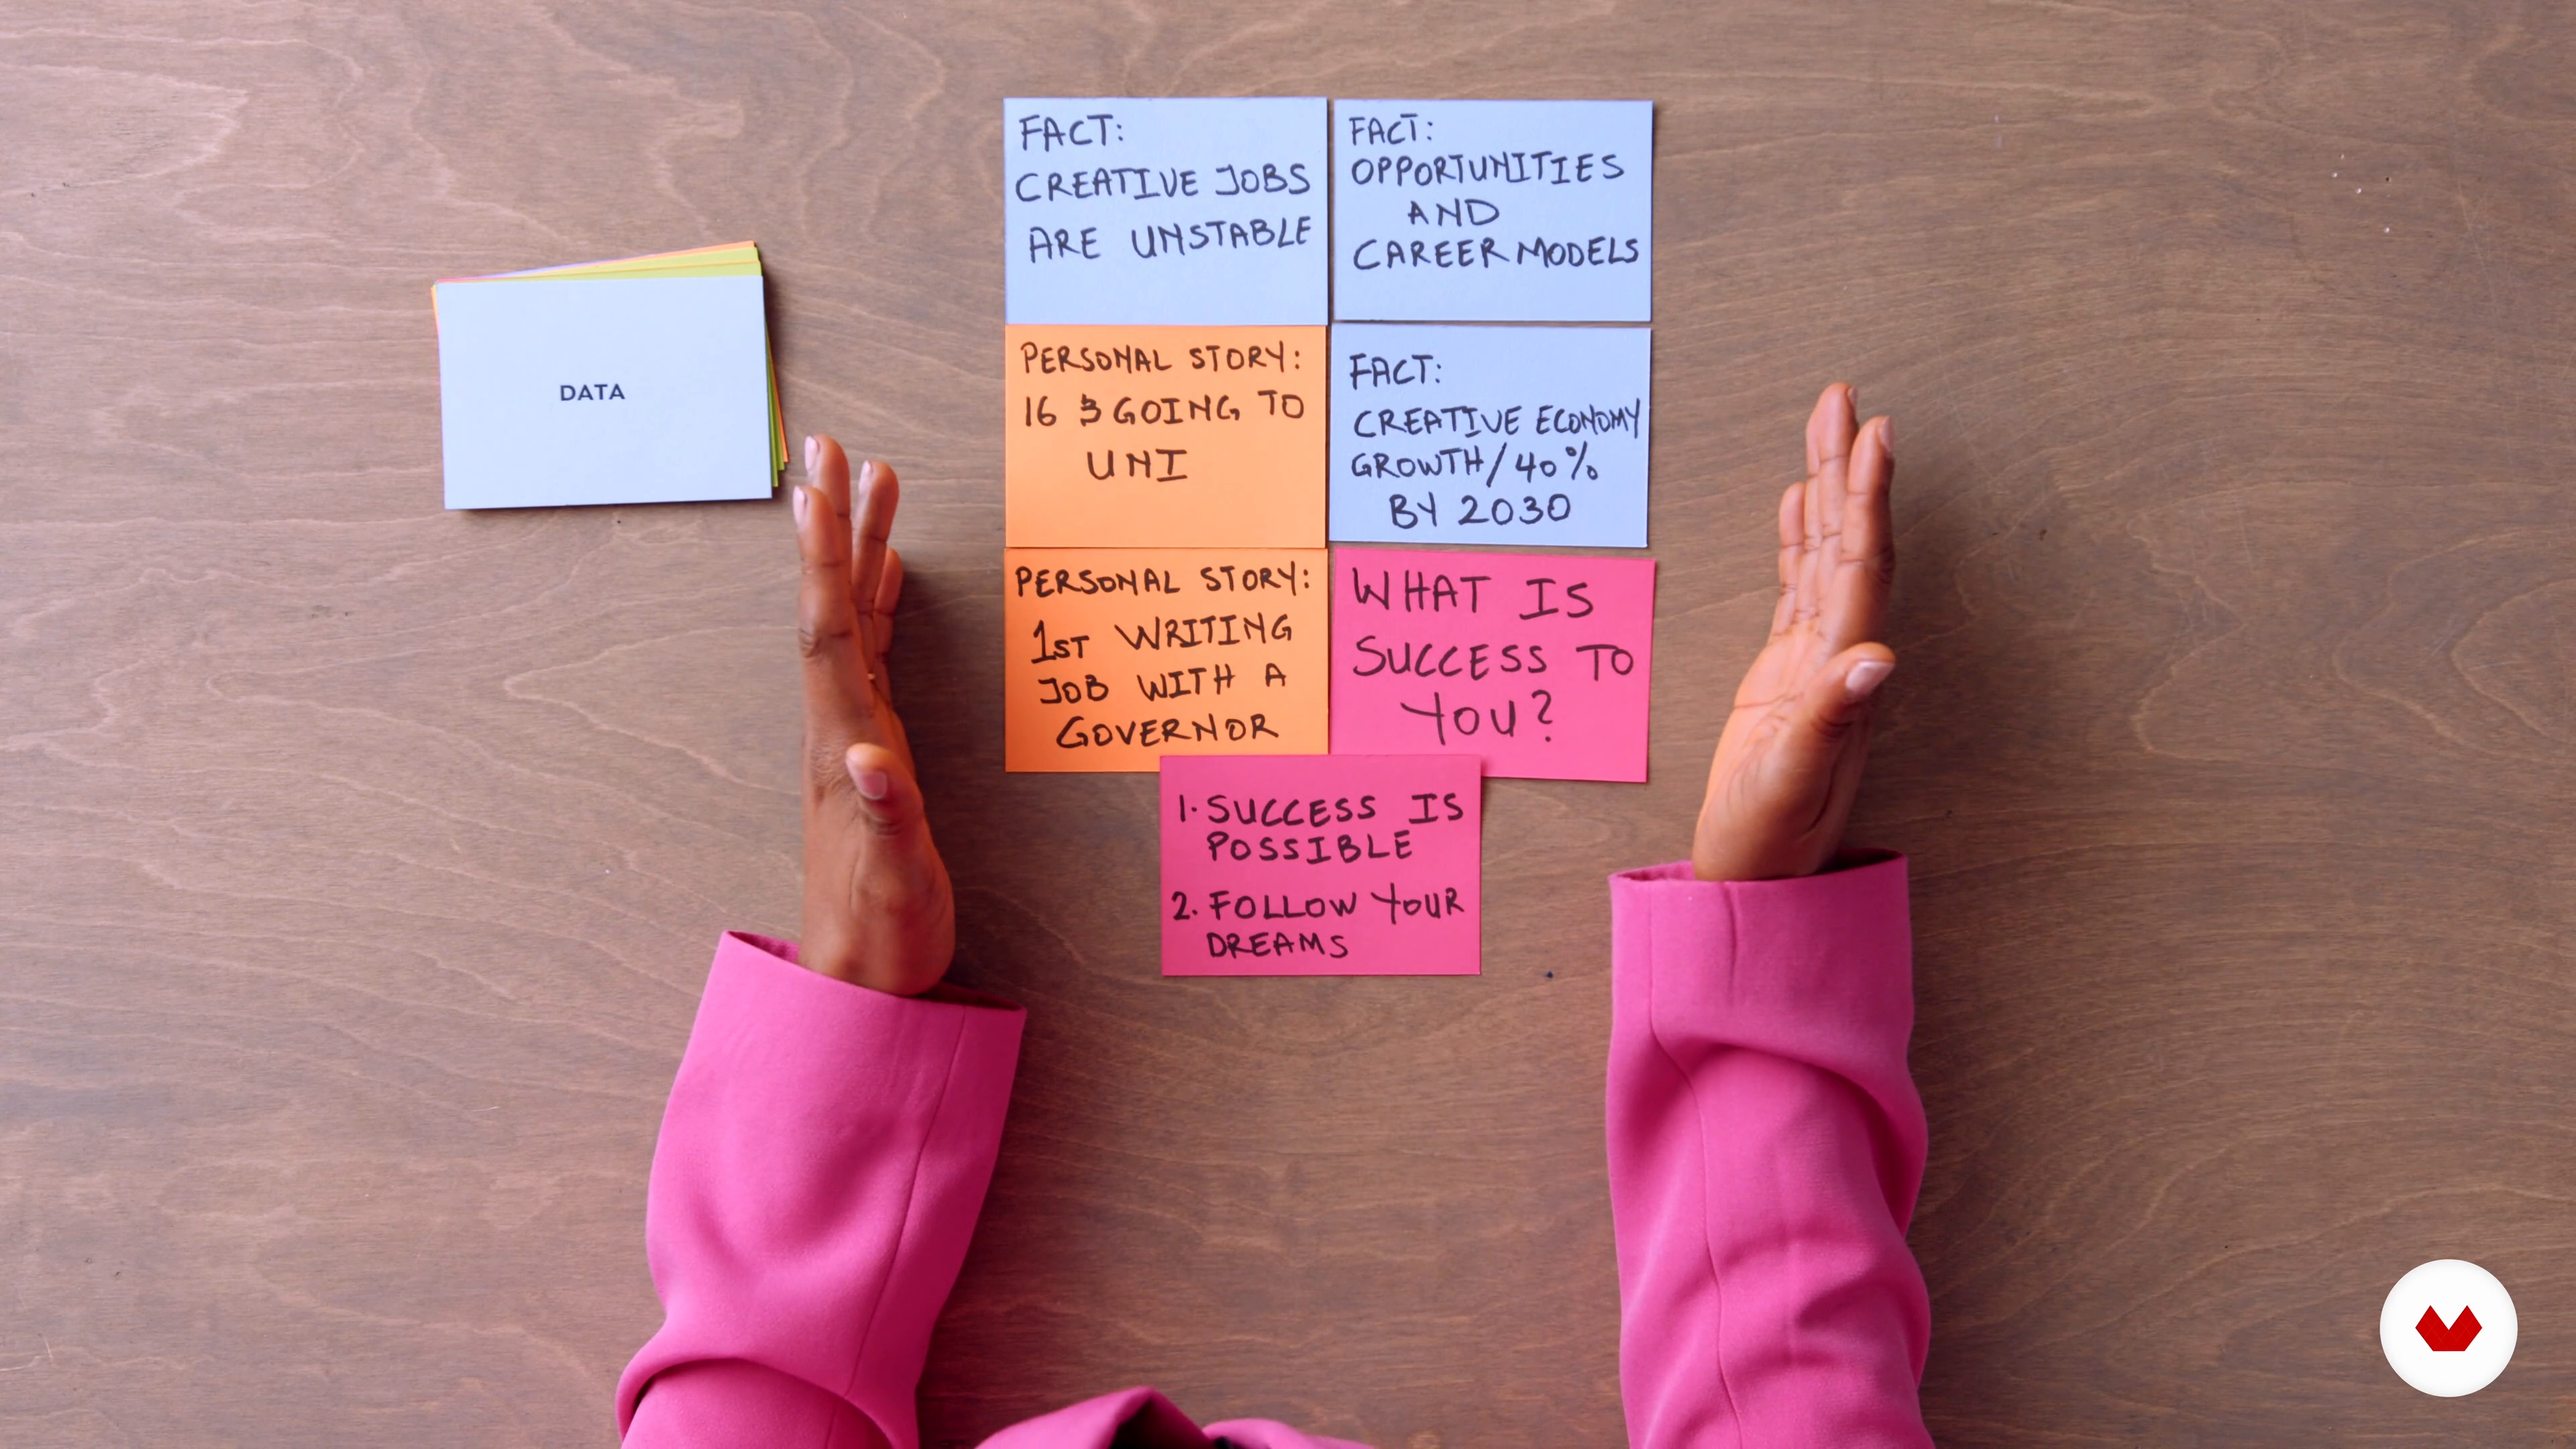 DATA
FACT:
CREATIVE JOBS
ARE UNSTABLE
FACT:
OPPORTUNITIES
AND
CAREER MODELS
PERSONAL STORY:
16 & GOING TO
UNI
FACT:
CREATIVE ECONOMY
GROWTH/40%
BY 2030
PERSONAL STORY:
1ST WRITING
JOB WITH A
GOVERNOR
WHAT IS
SUCCESS TO
YOU?
1. SUCCESS IS
POSSIBLE
2. FOLLOW YOUR
DREAMS